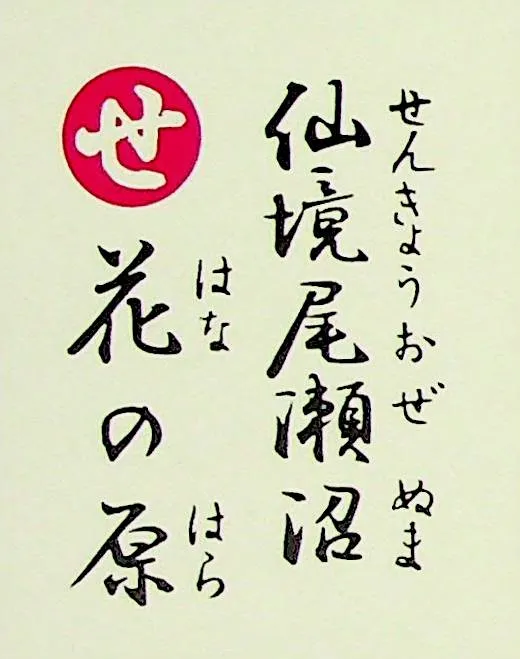 せんきょうおぜ ぬま
仙境尾瀬沼
せ
はな はら
花の原